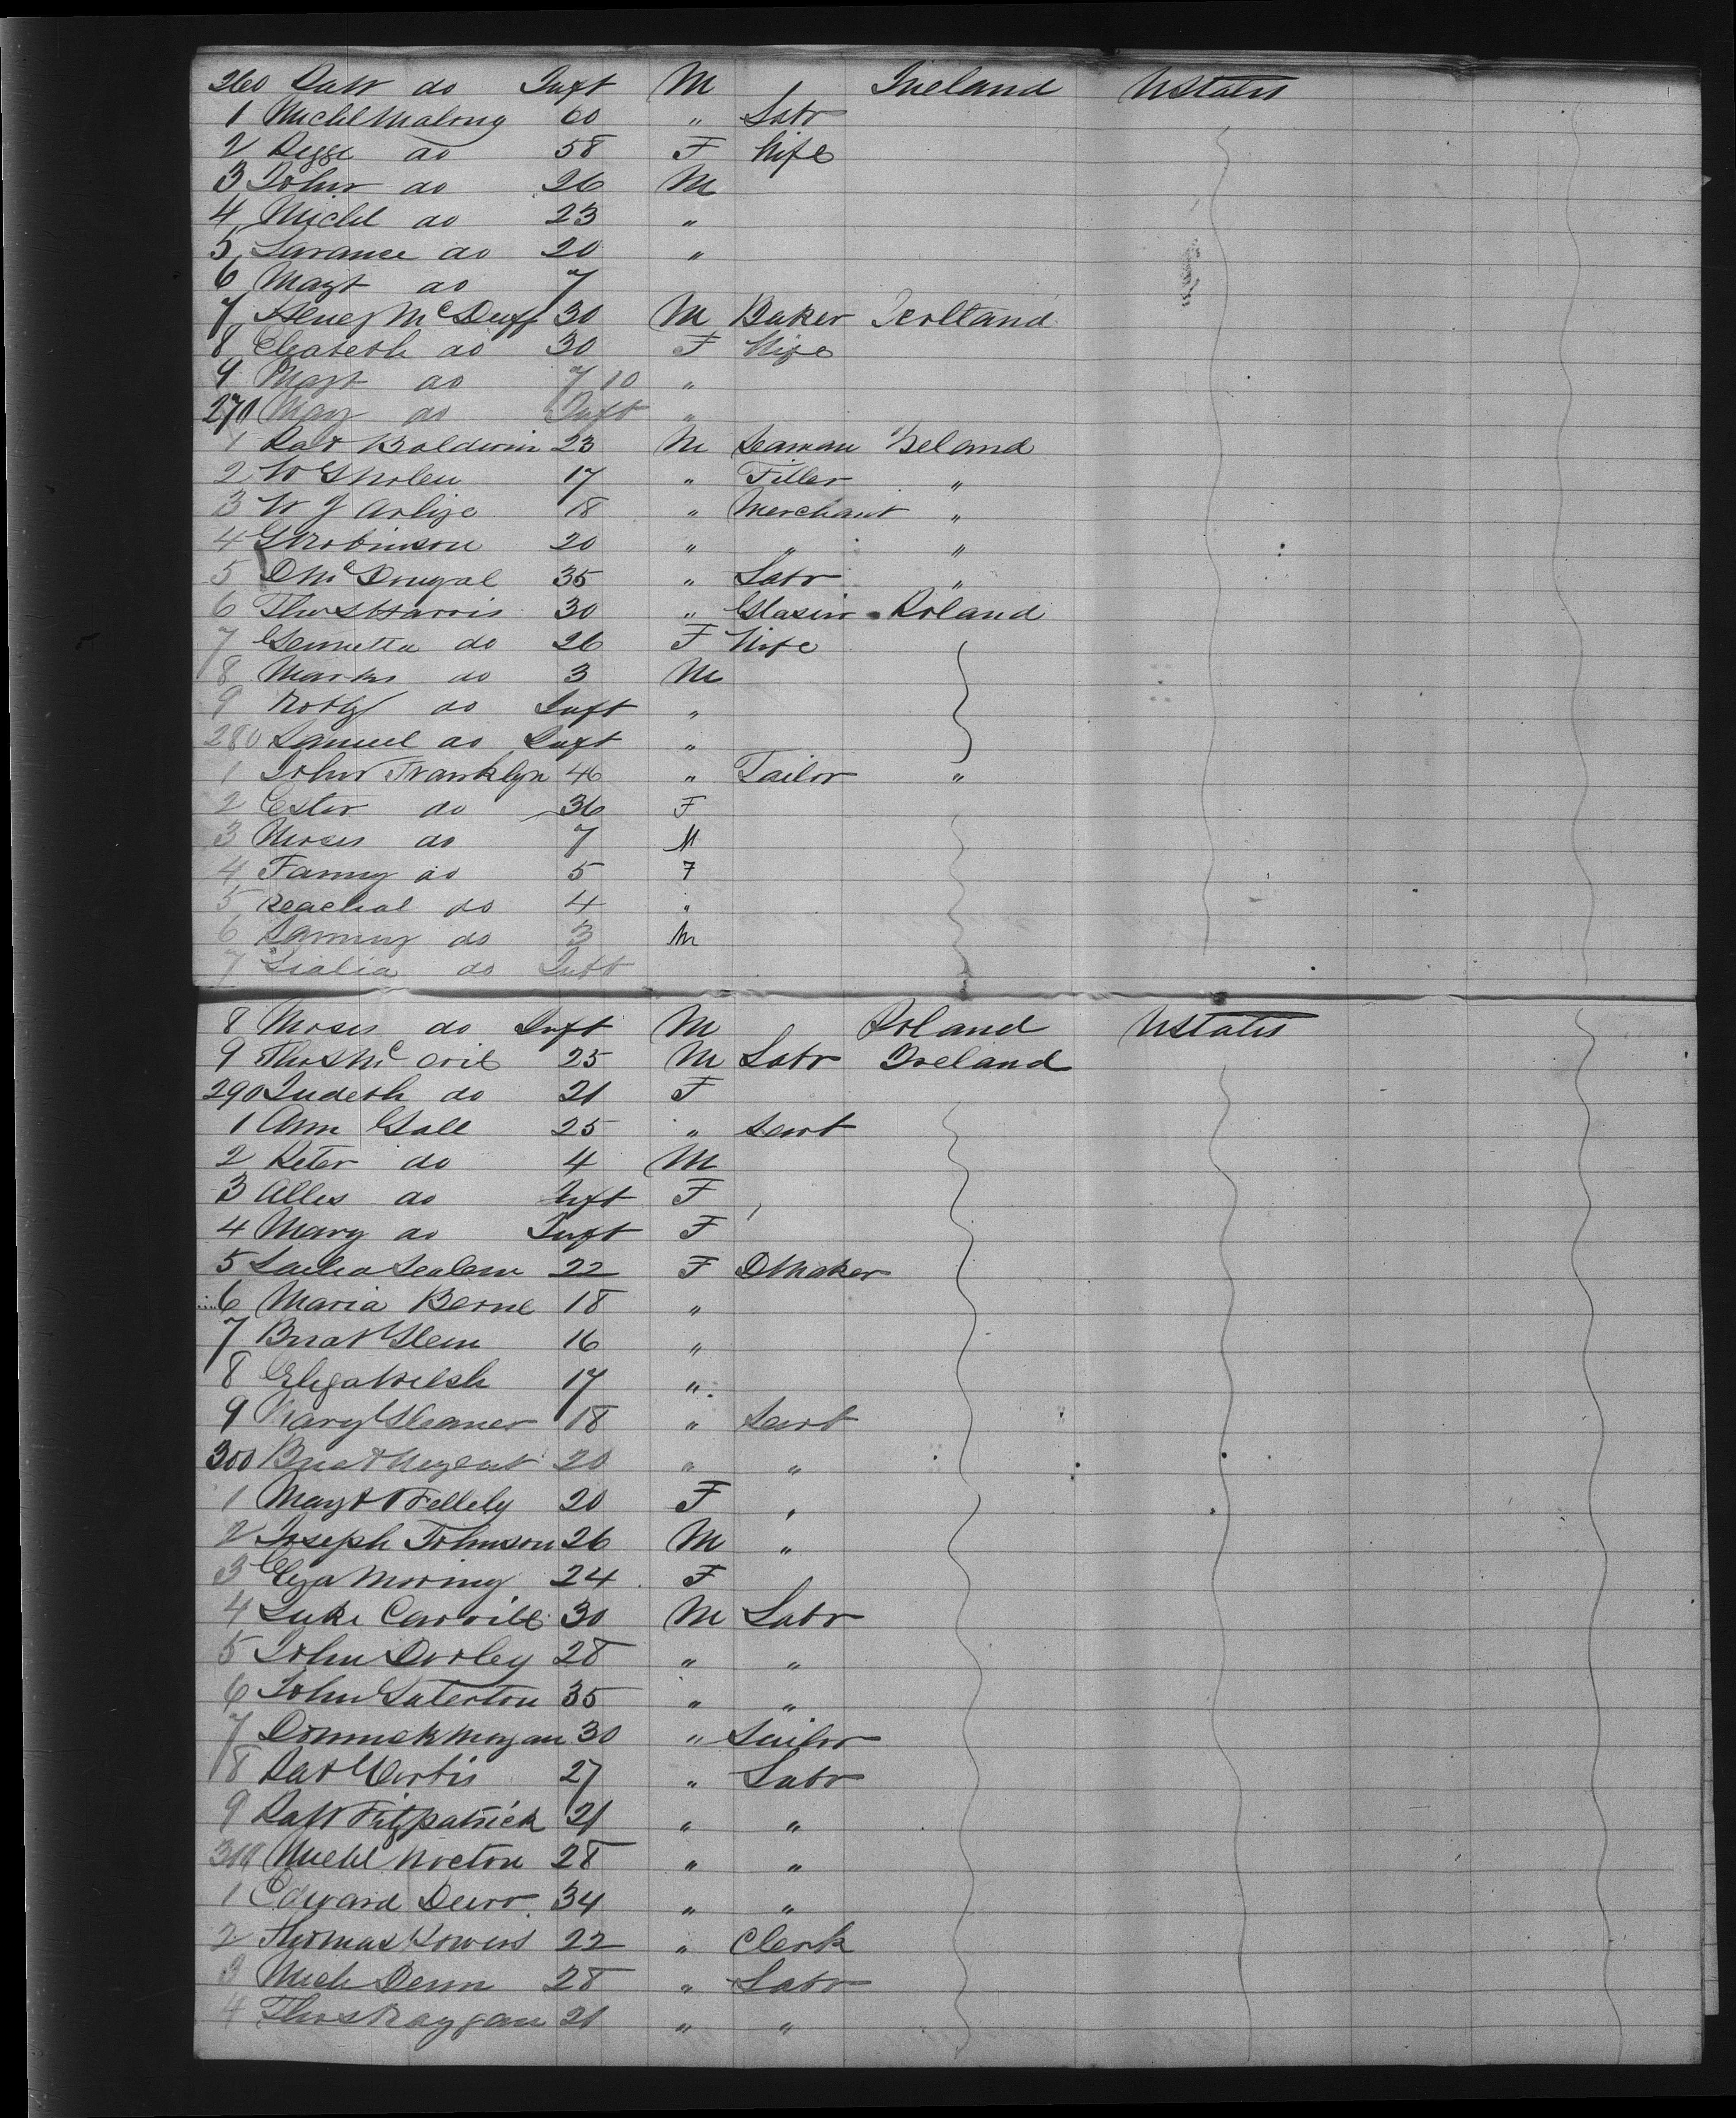 260 Patk do Inft M Ireland UStates
1 Michl Malony 60 " Labr
2 Pegge do 58 F Wife
3 John do 26 M
4 Michl do 23 "
5 Larance do 20 "
6 Magt do 7
7 Heney McDuff 30 M Baker Scotland
8 Elizabeth do 30 F Wife
9 Magt do 7 10 "
270 May do Inft "
1 Patk Baldwin 23 M Seaman Ireland
2 W 17 " Filler "
3 W J 18 " Merchant "
4 Robinson 20 " " "
5 D McDougal 35 " Labr "
6 Thos Harris 30 " Glasier Poland
7 do 26 F Wife
8 Marks do 3 M
9 do Inft "
280 Samuel do Inft "
1 John Franklyn 46 " Tailor "
2 Ester do 36 F
3 Moses do 7 M
4 Fanny do 5 F
5 Reachal do 4 "
6 Sammy do 3 M
7 do Inft
8 Moses do Inft M Poland UStates
9 Thos Mc 25 M Labr Ireland
290 Judeth do 21 F
1 Ann Gall 25 " Sert
2 Peter do 4 M
3 Alles do Inft F
4 Mary do Inft F
5 22 F DMaker
6 Maria Berne 18 "
7 Bridt Glem 16 "
8 Eliza Welsh 17 "
9 Mary 18 " Sert
300 Bridt Nugent 20 " "
1 Magt 20 F "
2 Joseph Johnson 26 M "
3 Eliza 24 F
4 Luke Carvill 30 M Labr
5 John Dorley 28 " "
6 John 35 " "
7 Dominick Mogan 30 " Sailor
8 Pat Curtis 27 " Labr
9 Patk Fitzpatrick 21 " "
310 Michl Nocton 28 " "
1 Edward Durr 34 " "
2 Thomas Powers 22 " Clerk
3 Mich Denn 28 " Labr
4 Thos Raygan 21 " "